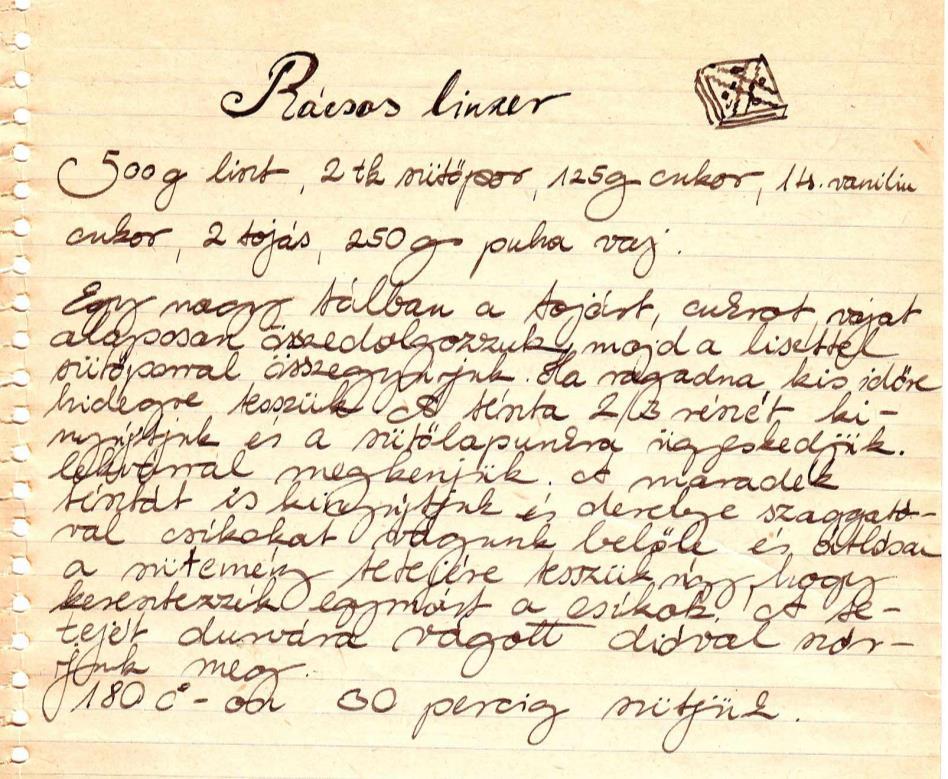 Rácsos linzer
500g liszt, 2 tk sütőpor, 125g cukor, 1 ts. vaniliu
cukor, 2 tojás, 250 g puha vaj.
Egy nagy tálban a tojást, cukrot, vajat
alaposan összedolgozzuk, majd a liszttel
sütőporral összegyúrjuk. Ha ragadna kis időre
hidegre tesszük. A tészta 2/3 részét ki-
nyújtjuk és a sütőlapunkra ügyeskedjük.
lekvárral megkenjük. A maradék
tésztát is kinyújtjuk és derelye szaggató-
val csíkokat vágunk belőle és átlósan
a sütemény tetejére tesszük úgy, hogy
keresztezzék egymást a csíkok. A te-
tejét durvára vágott dióval szór-
juk meg.
180 C°-on 30 percig sütjük.